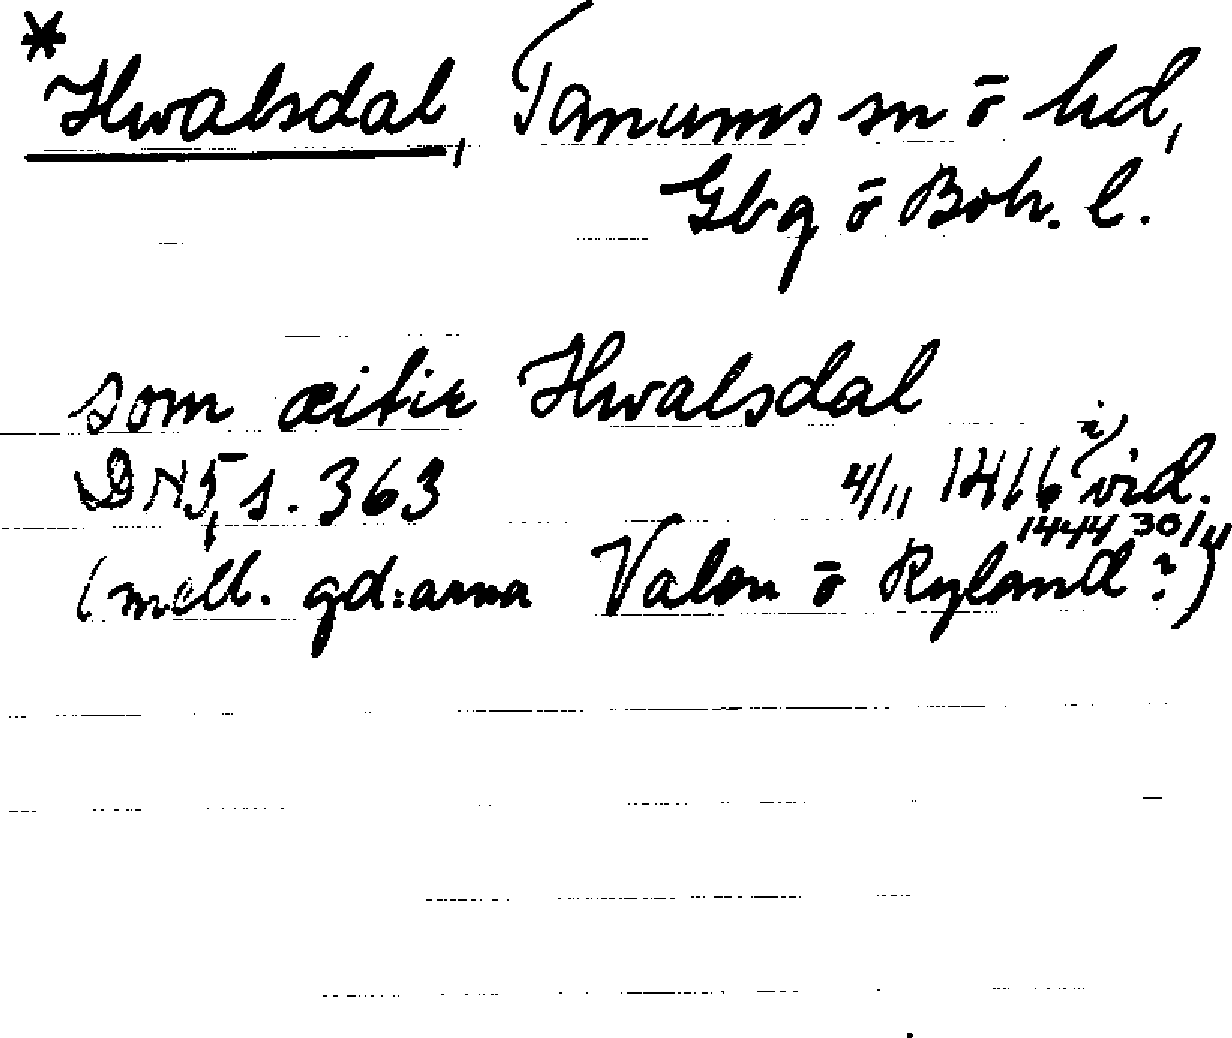 *Hwalsdal, Tanums sn ō hd,
Gbg ō Boh. l.
som æitir Hwalsdal
DN 5, s. 363 4/11 1416 i) vid.
1444 30/4
(mell. gd:arna Valen ō Ryland?)